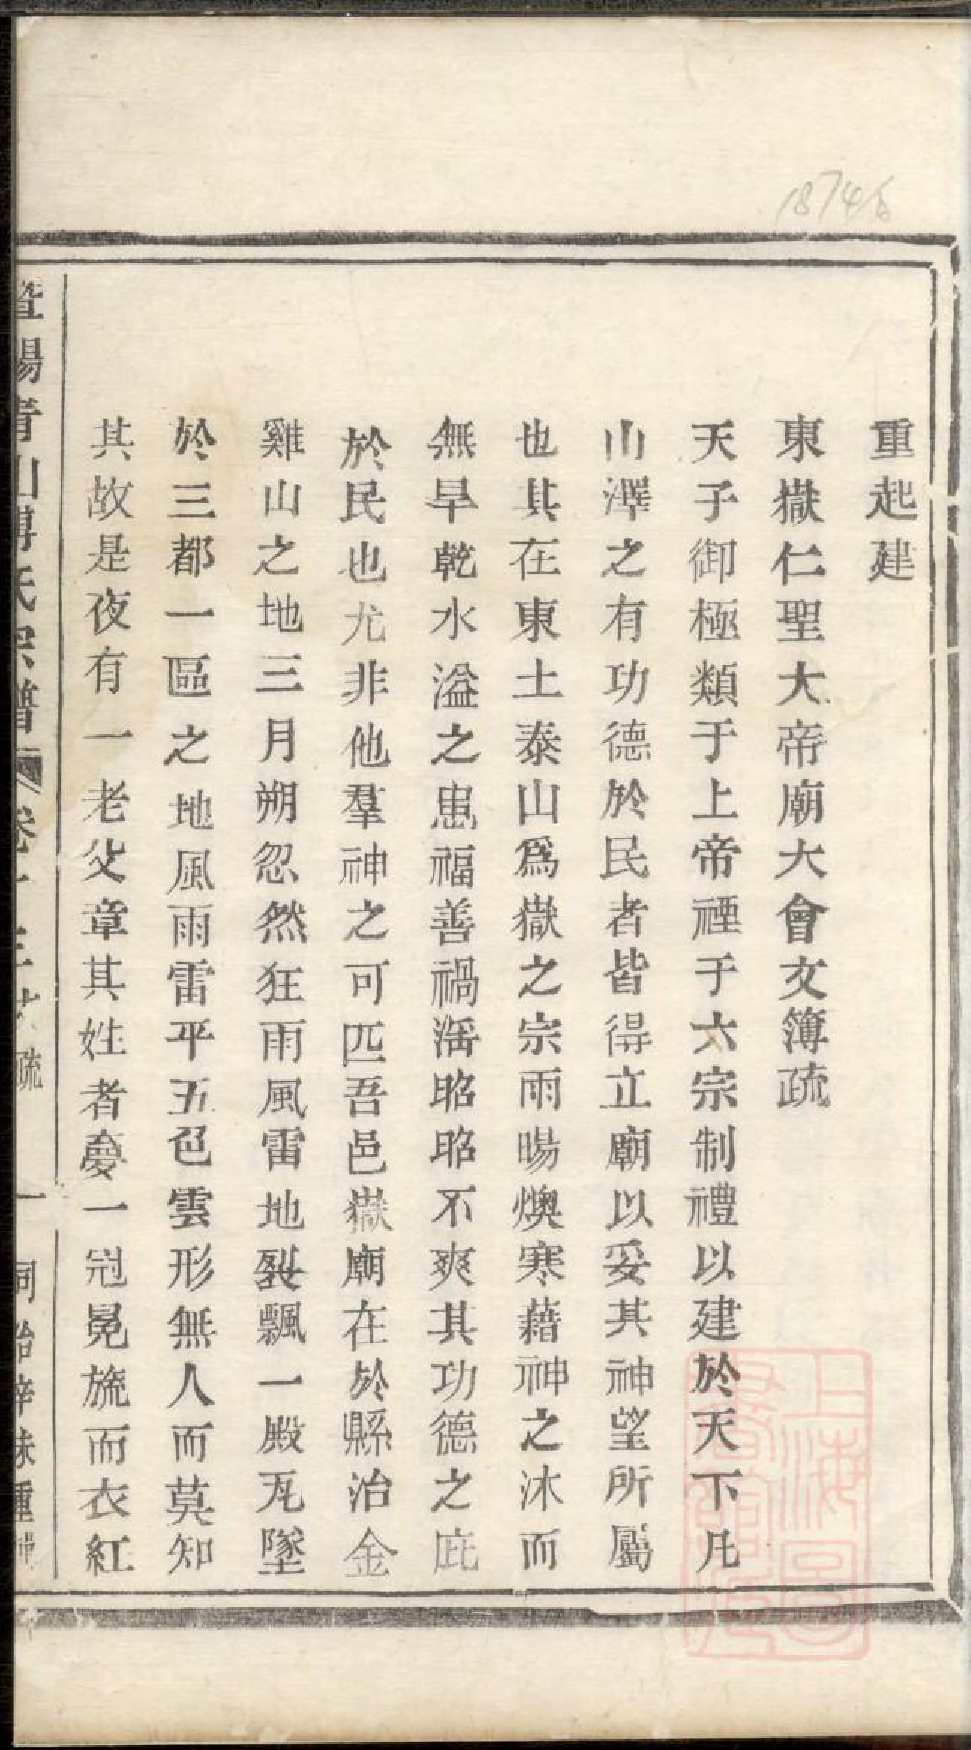 18746
重起建
東嶽仁聖大帝廟大會文簿疏
天子御極類于上帝禋于六宗制禮以建於天下凡
山澤之有功德於民者皆得立廟以妥其神望所屬
也其在東土泰山爲嶽之宗雨暘燠寒藉神之沐而
無旱乾水溢之患福善禍滛昭昭不爽其功德之庇
於民也尤非他羣神之可匹吾邑嶽廟在於縣治金
雞山之地三月朔忽然狂雨風雷地裂飄一殿瓦墜
於三都一區之地風雨雷平五色雲形無人而莫知
其故是夜有一老父章其姓者夢一冠冕旒而衣紅
暨陽青山傅氏宗譜 卷十三 疏 一 同治辛未重
上海圖書館藏